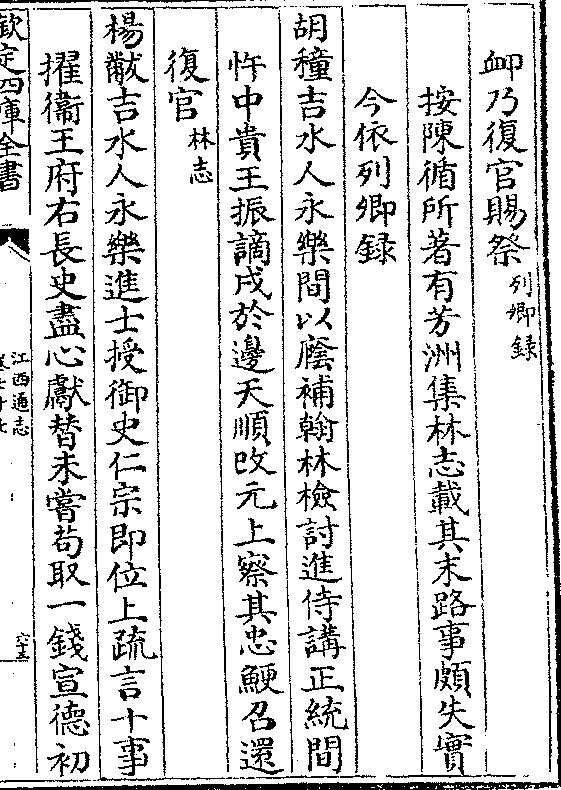 卹乃復官賜祭列卿録
按陳循所著有芳洲集林志載其末路事頗失實
今依列卿録
胡穜吉水人永樂間以廕補翰林檢討進侍講正統間
忤中貴王振謫戍於邊天順改元上察其忠鯁召還
復官林志
楊黻吉水人永樂進士授御史仁宗即位上疏言十事
擢衞王府右長史盡心獻替未嘗茍取一錢宣德初
欽定四庫全書
江西通志